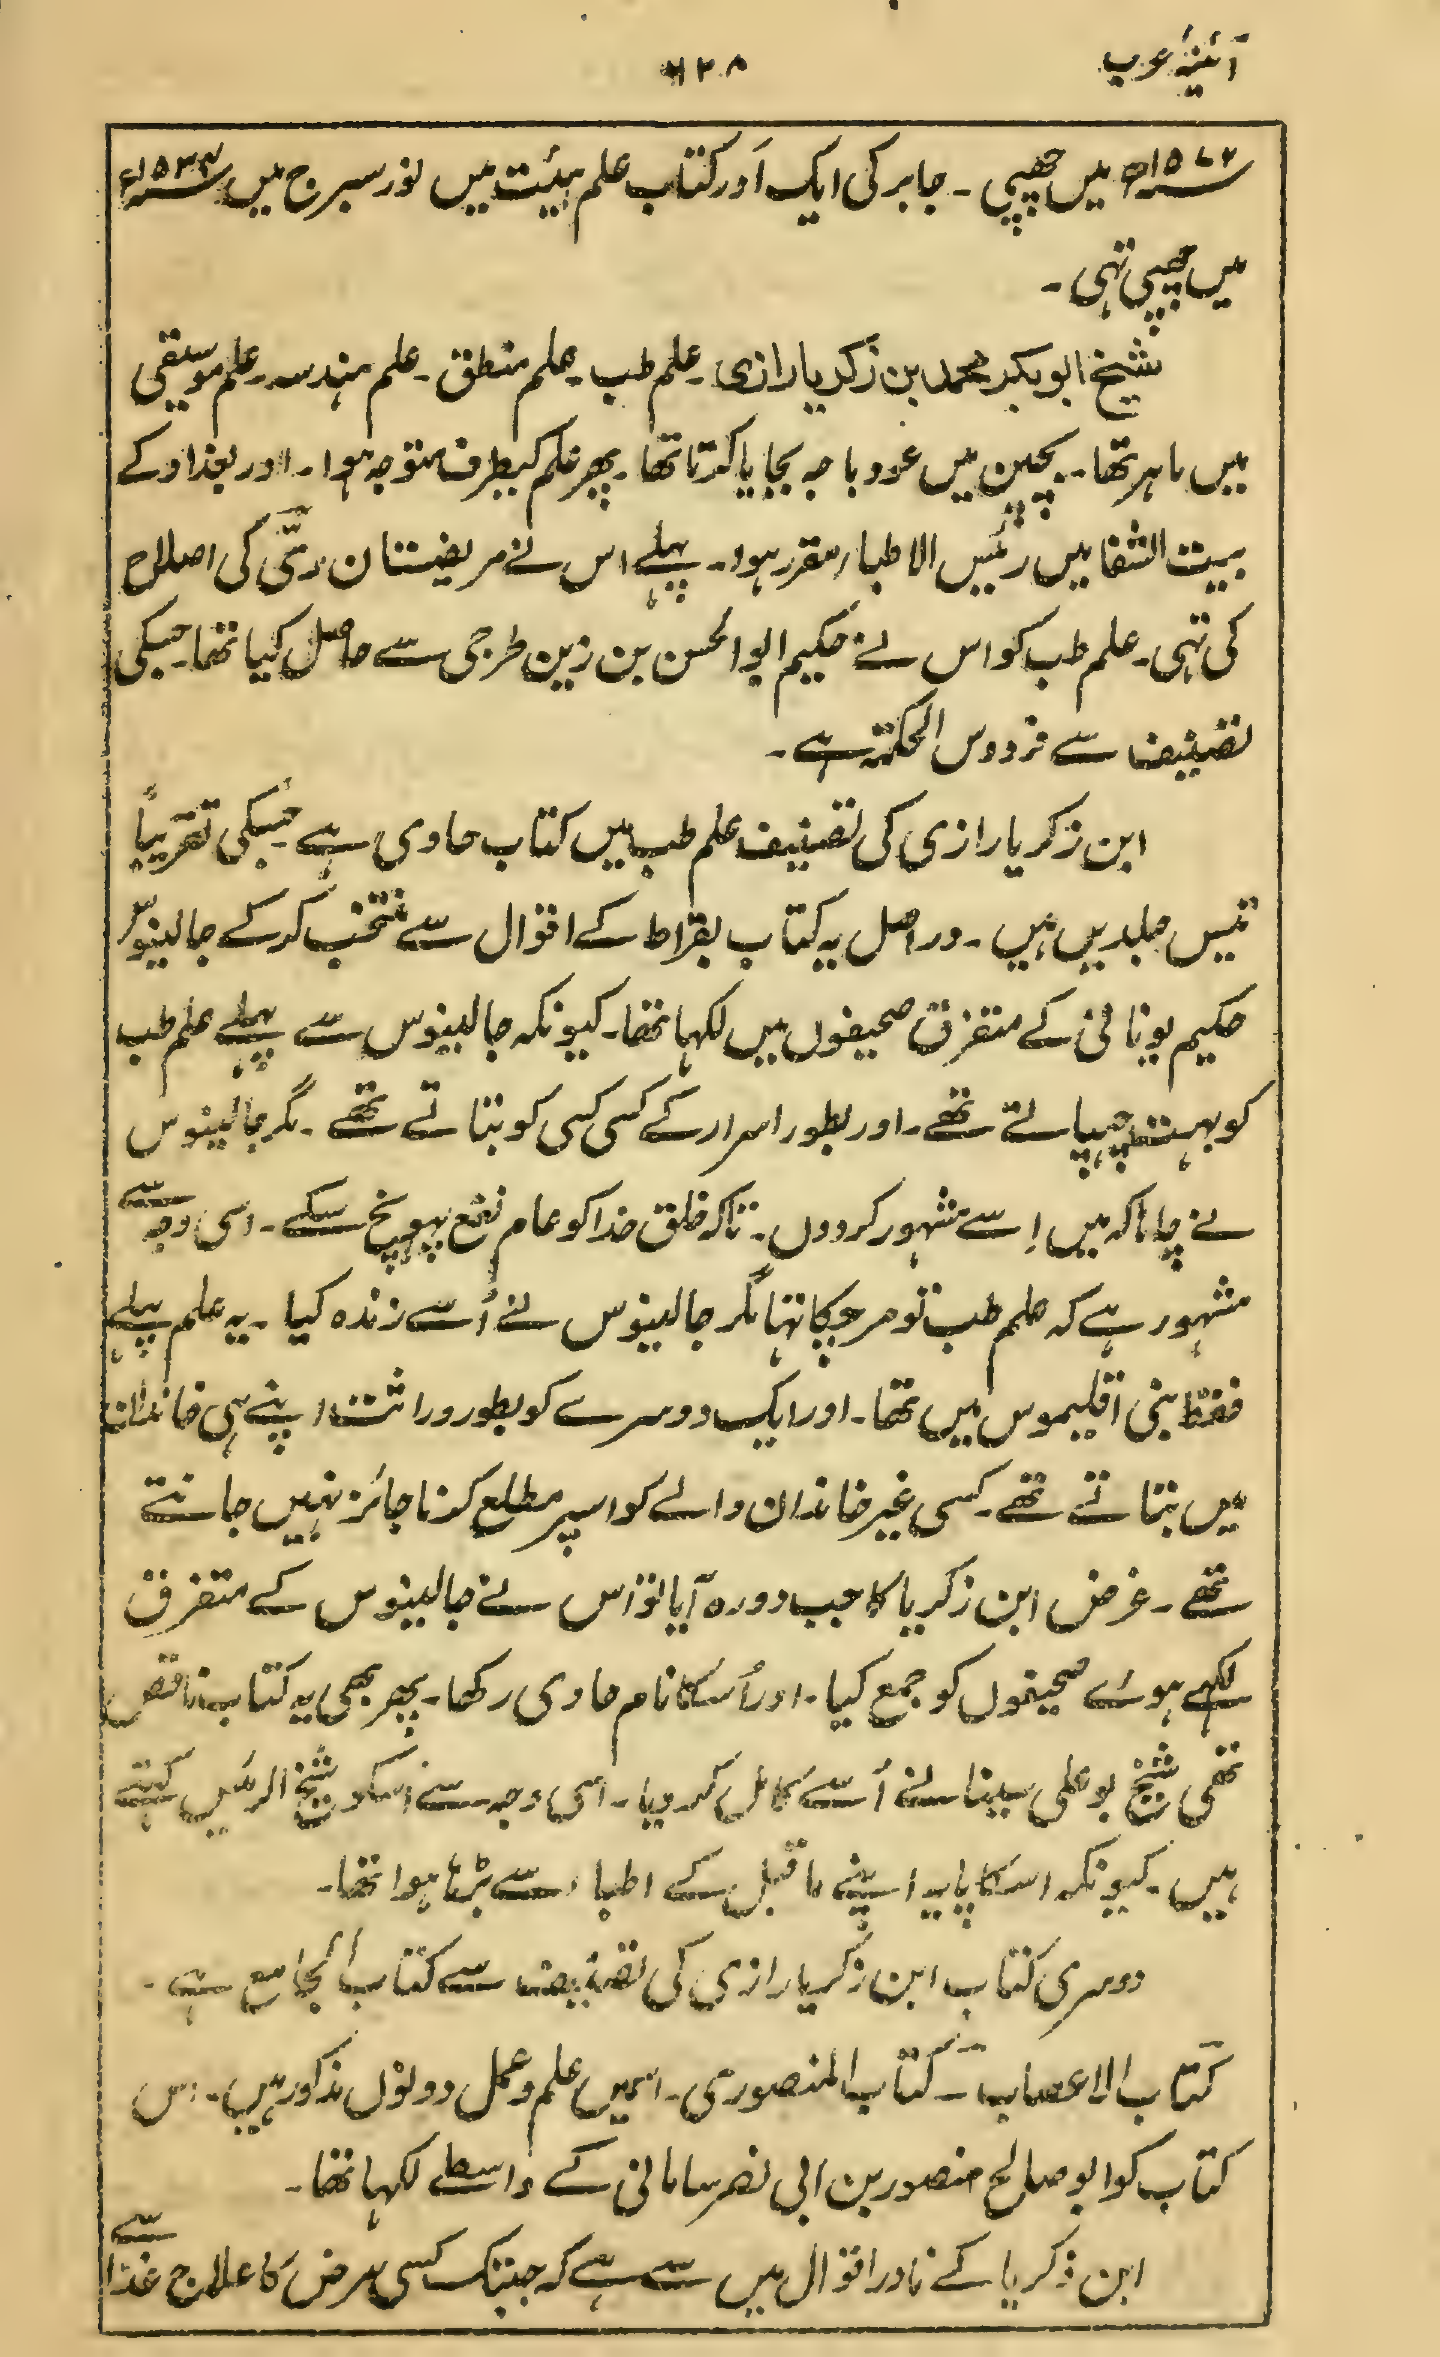 آئینۂ عرب
۱۲۸
۱۵۷۲ء میں چھپی ۔ جابر کی ایک اَور کتاب علم ہیئت میں نورسبرج میں ۱۵۳۴ء
میں چھپی تہی ۔
شیخ ابوبکر محمد بن زکریا رازی ۔ علم طب ۔ علم منطق ۔ علم ہندسہ ۔ علم موسیقی
میں ماہر تھا ۔ بچپن میں عود باجہ بجایا کرتا تھا ۔ پھر علم کیطرف متوجہ ہوا ۔ اور بغداد کے
بیت الشفا میں رئیس الاطباء مقرر ہوا ۔ پہلے اس نے مریضستان ریّ کی اصلاح
کی تہی ۔ علم طب کو اس نے حکیم ابوالحسن بن زین طرجی سے حاصل کیا تھا ۔ جسکی
تصنیف سے فردوس الحکمۃ ہے ۔
ابن زکریا رازی کی تصنیف علم طب میں کتاب حاوی ہے جسکی تقریباً
تیس جلدیں ہیں ۔ دراصل یہ کتاب بقراط کے اقوال سے منتخب کر کے جالینوس
حکیم یونانی نے متفرق صحیفوں میں لکہا تھا ۔ کیونکہ جالینوس سے پہلے علم طب
کو بہت چہپاتے تھے ۔ اور بطور اسرار کے کسی کسی کو بتاتے تھے ۔ مگر جالینوس
نے چاہا کہ میں اِسے مشہور کردوں ۔ تاکہ خلق خدا کو عام نفع پہونچ سکے ۔ اسی وجہ سے
مشہور ہے کہ علم طب تو مرچکا تہا مگر جالینوس نے اُسے زندہ کیا ۔ یہ علم پہلے
فقط بنی اقلیموس میں تھا ۔ اور ایک دوسرے کو بطور وراثت اپنے ہی خاندان
میں بتاتے تھے ۔ کسی غیر خاندان والے کو اسپر مطلع کرنا جائز نہیں جانتے
تھے ۔ غرض ابن زکریا کا جب دورہ آیا تو اس نے جالینوس کے متفرق
لکہے ہوئے صحیفوں کو جمع کیا ۔ اور اُسکا نام حاوی رکھا ۔ پھر بھی یہ کتاب ناقص
تھی شیخ بوعلی سینا نے اُسے کامل کردیا ۔ اسی وجہ سے اُسکو شیخ الرئیس کہتے
ہیں ۔ کیونکہ اسکا پایہ اپنے ماقبل کے اطباء سے بڑہا ہوا تھا ۔
دوسری کتاب ابن زکریا رازی کی تصنیف سے کتاب الجامع ہے ۔
کتاب الاعصاب ۔ کتاب المنصوری ۔ اسمیں علم و عمل دونوں مذکور ہیں ۔ اس
کتاب کو ابو صالح منصور بن ابی نصر سامانی کے واسطے لکہا تھا ۔
ابن زکریا کے نادر اقوال میں سے ہے کہ جبتک کسی مرض کا علاج غذا سے